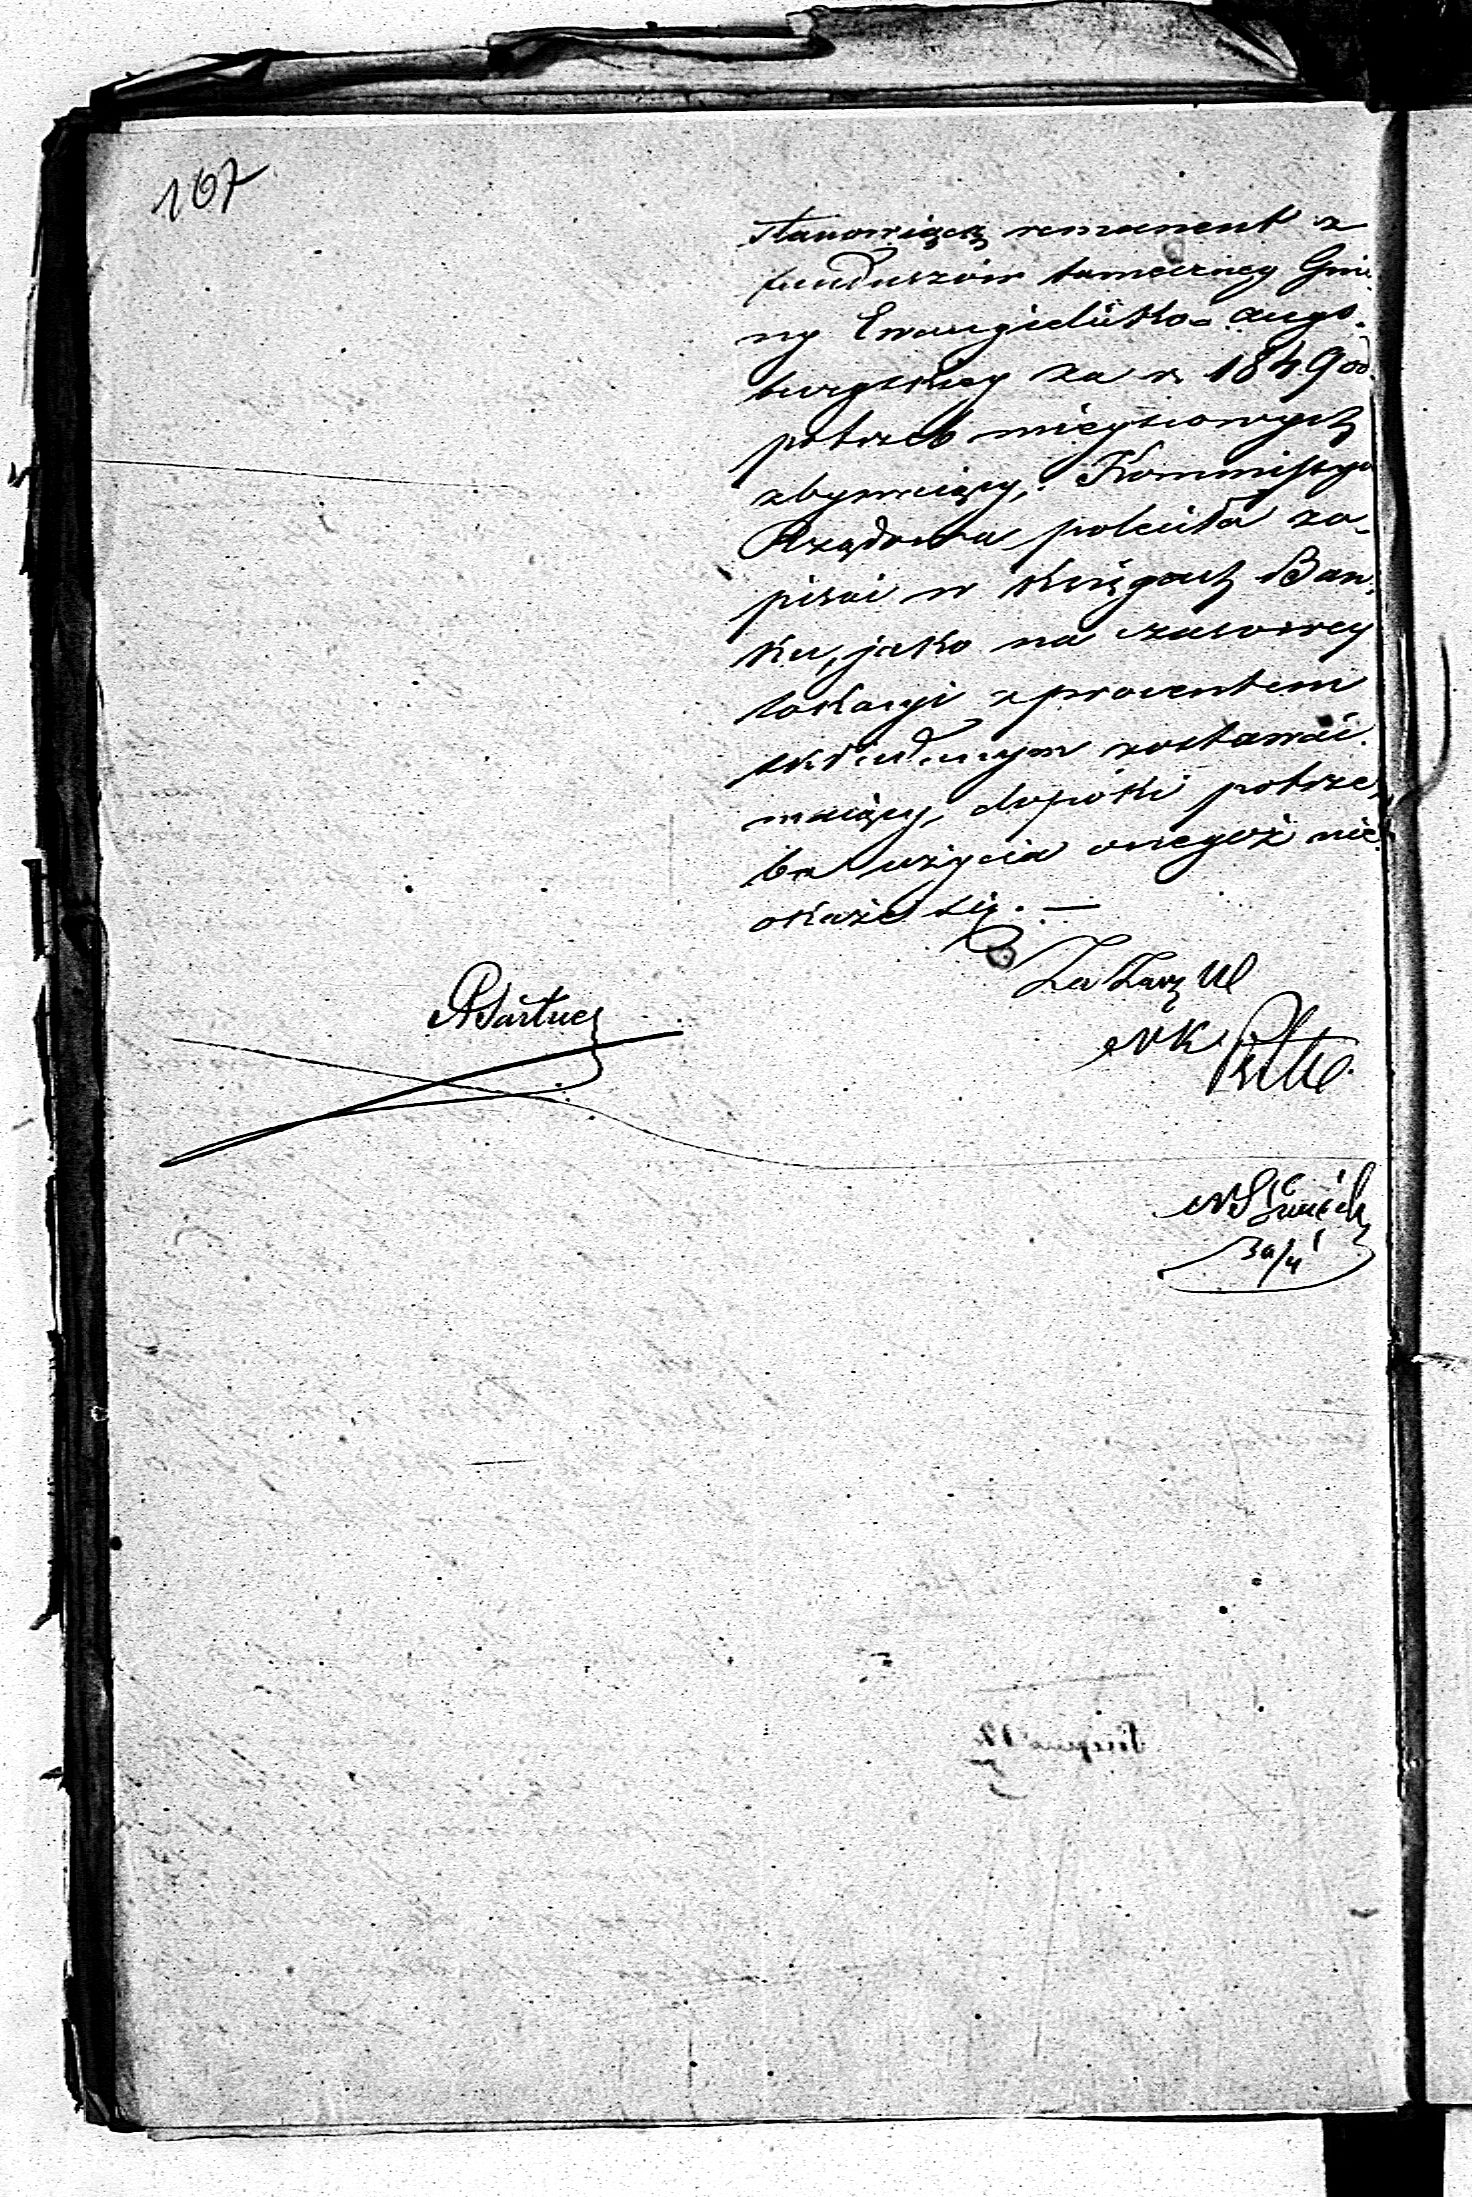 167
stanowiącą remanent z
funduszów tameczney Gmi-
ny Ewangielicko-Augs-
burgskiey za r. 1849 od
potrzeb mieyscowych
zbywaiący, Kommissya
Rządowa poleciła za-
pisać w księgach Ban-
ku, jako na czasowey
lokacyi z procentem
składanym zostawać
maiący, dopóki potrze-
ba użycia onegoż nie
okaże się. —
Za Zarz